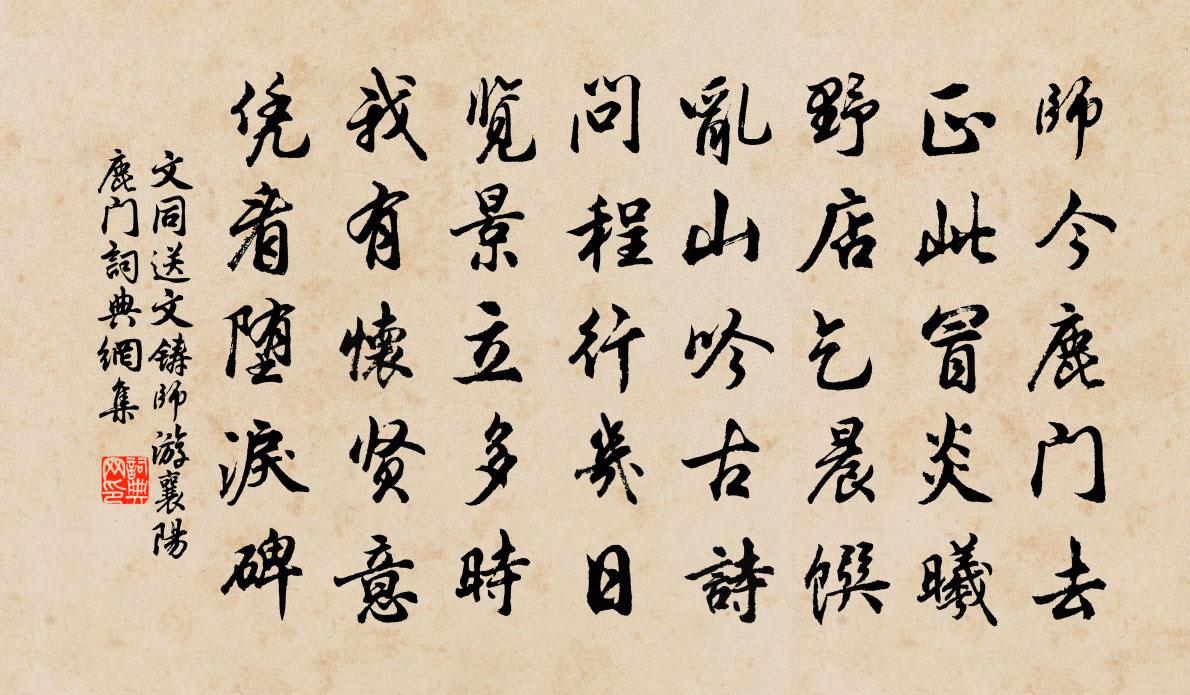 師今鹿门去
正此冒炎曦
野店乞晨饌
亂山吟古詩
問程行幾日
覽景立多時
我有懷贤意
凭看堕淚碑
文同送文鑄師游襄陽
鹿门詞典網集
詞典
网印